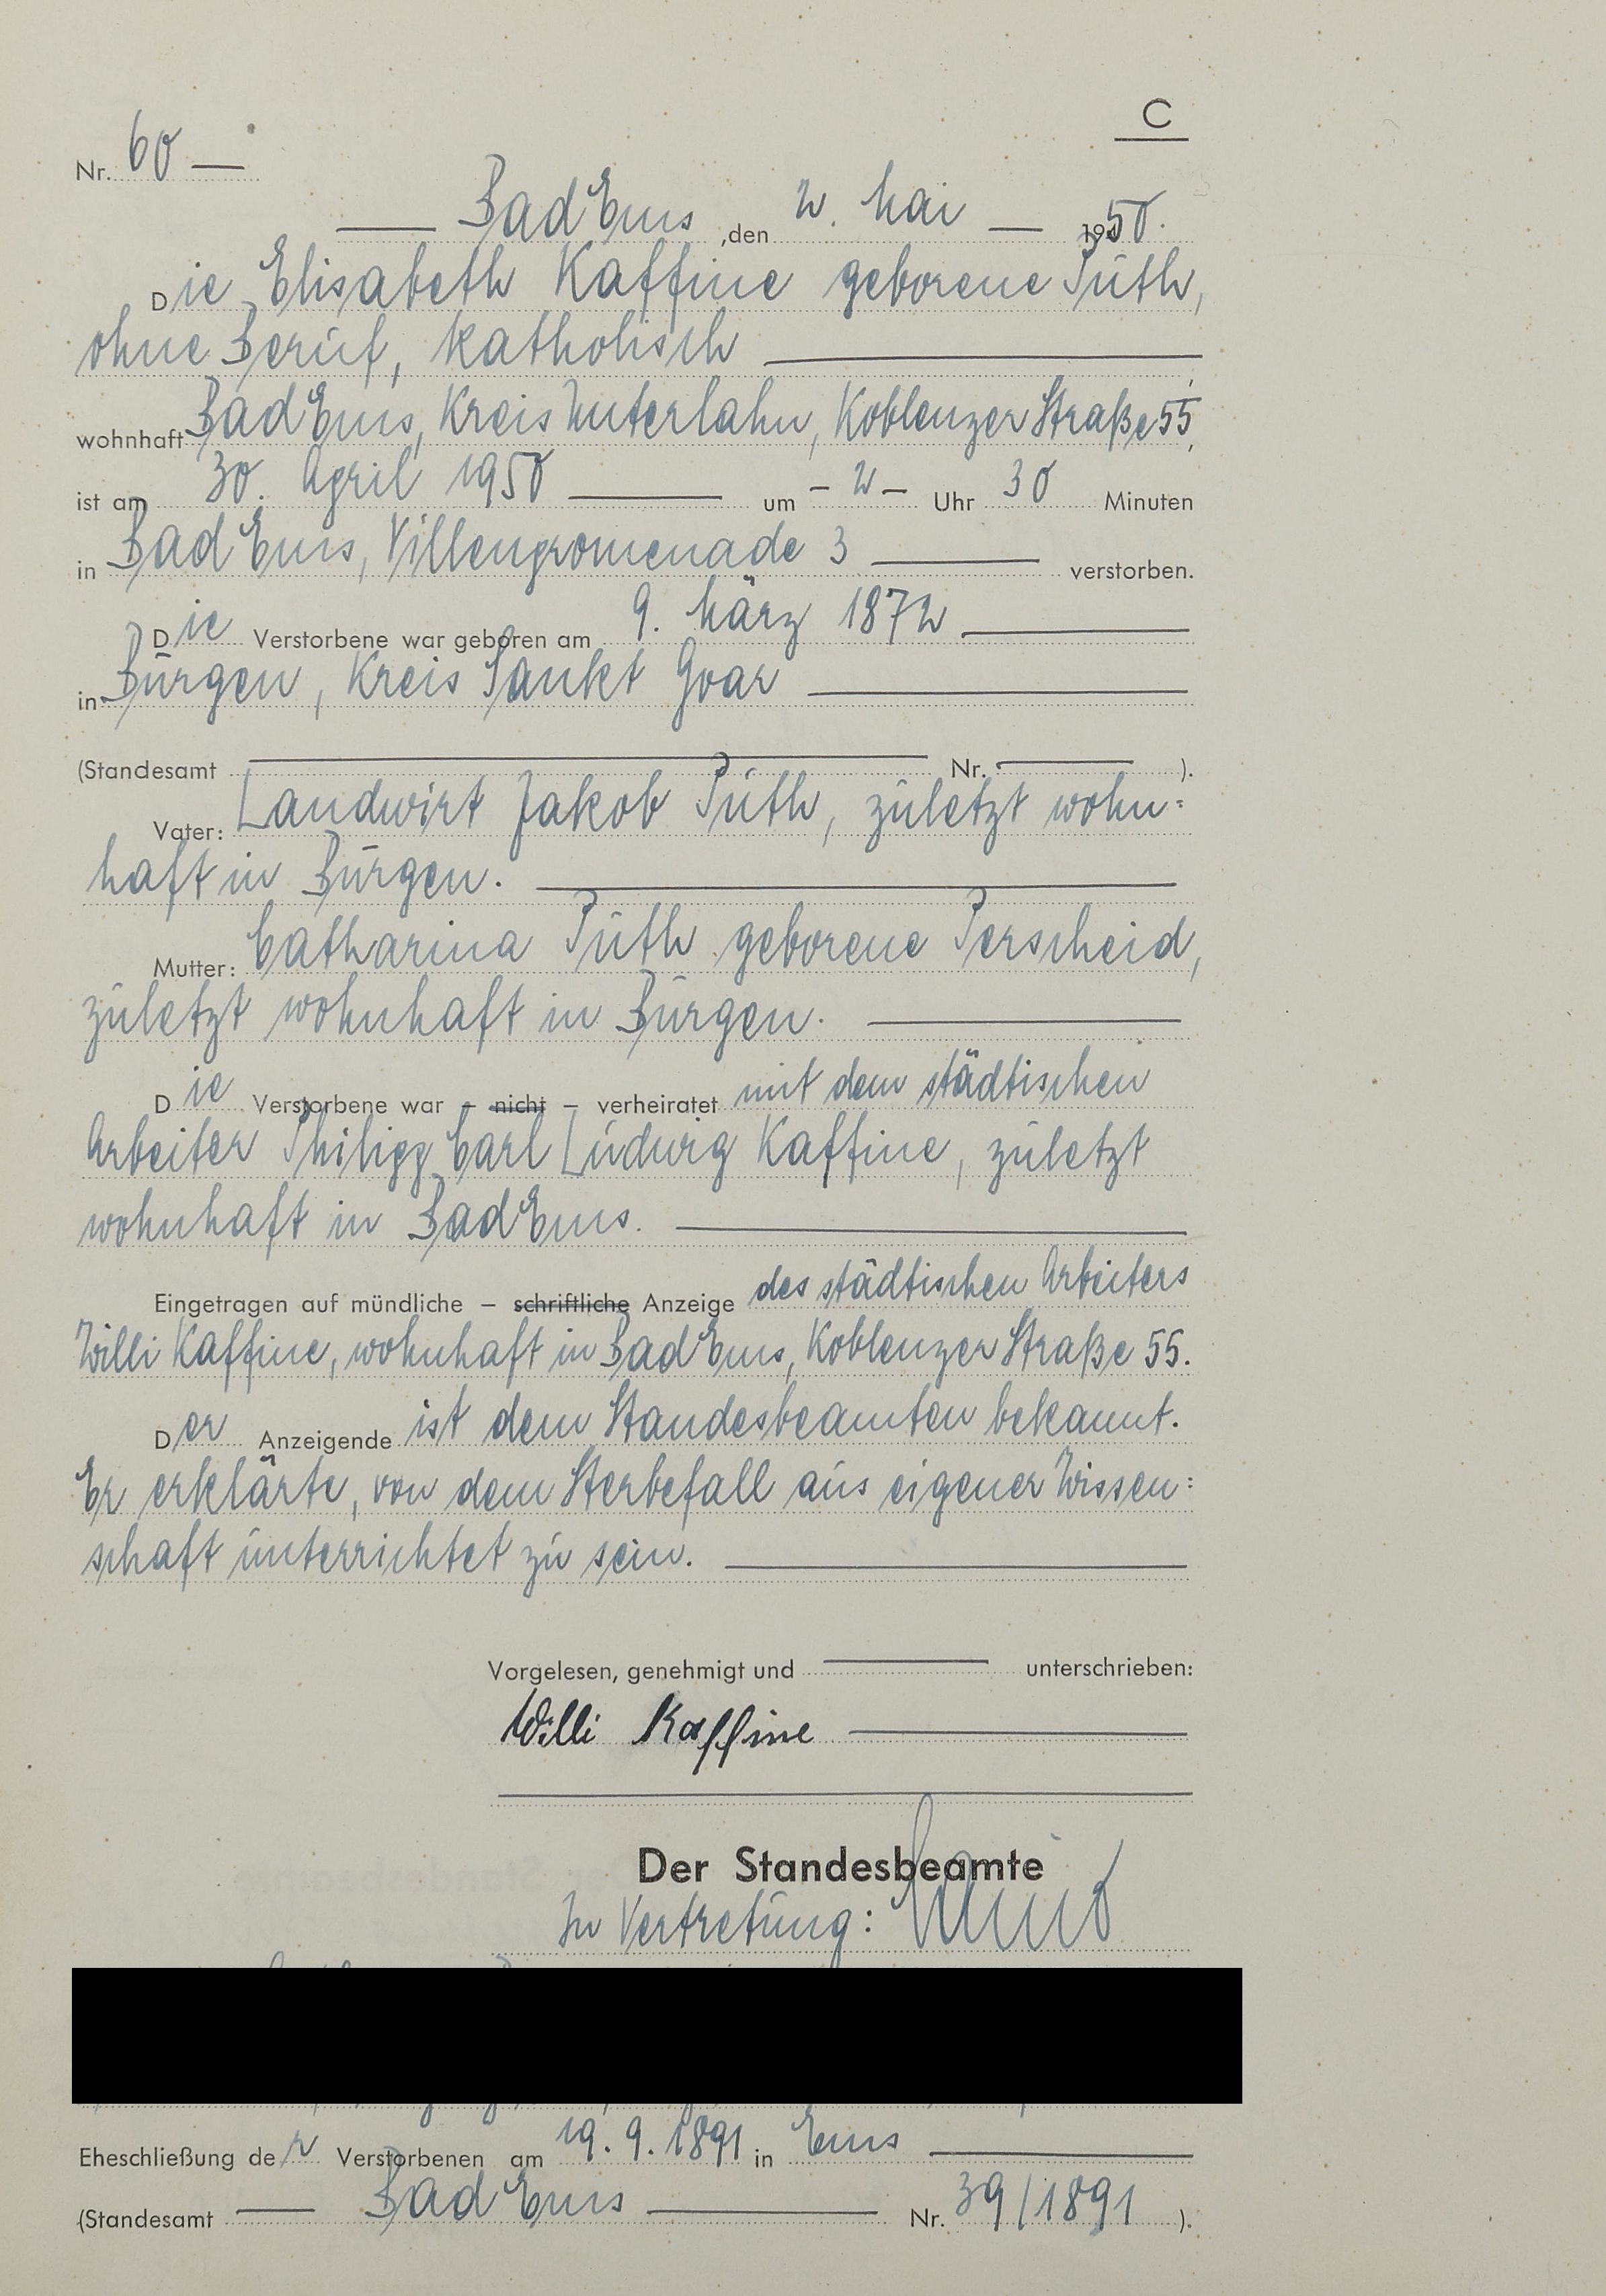 C
Nr. 60 —
Bad Ems, den 2. Mai — 1950.
Die Elisabeth Kaffine geborene Püth,
ohne Beruf, katholisch
wohnhaft Bad Ems, Kreis Unterlahn, Koblenzer Straße 55,
ist am 30. April 1950 um – 2 – Uhr 30 Minuten
in Bad Ems, Villenpromenade 3 verstorben.
Die Verstorbene war geboren am 9. März 1872
in Burgen, Kreis Sankt Goar
(Standesamt Nr. ).
Vater: Landwirt Jakob Püth, zuletzt wohn=
haft in Burgen.
Mutter: Catharina Püth geborene Perscheid,
zuletzt wohnhaft in Burgen.
Die Verstorbene war – nicht – verheiratet mit dem städtischen
Arbeiter Philipp Carl Ludwig Kaffine, zuletzt
wohnhaft in Bad Ems.
Eingetragen auf mündliche – schriftliche Anzeige des städtischen Arbeiters
Willi Kaffine, wohnhaft in Bad Ems, Koblenzer Straße 55.
Der Anzeigende ist dem Standesbeamten bekannt.
Er erklärte, von dem Sterbefall aus eigener Wissen=
schaft unterrichtet zu sein.
Vorgelesen, genehmigt und unterschrieben:
Willi Kaffine
Der Standesbeamte
In Vertretung:
Eheschließung der Verstorbenen am 19. 9. 1891 in Ems
(Standesamt Bad Ems Nr. 39/1891 ).